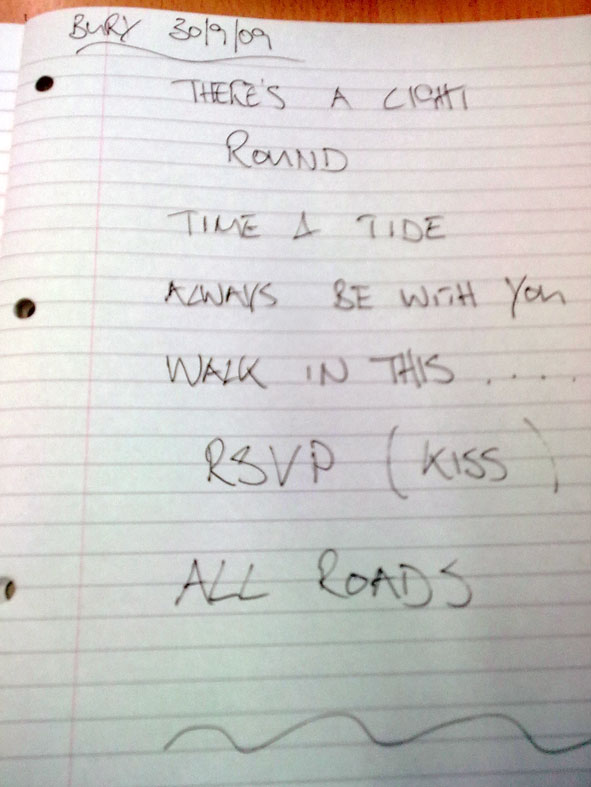 BURY 30/9/09
THERE'S A LIGHT
ROUND
TIME & TIDE
ALWAYS BE WITH YOU
WALK IN THIS ....
RSVP (KISS)
ALL ROADS